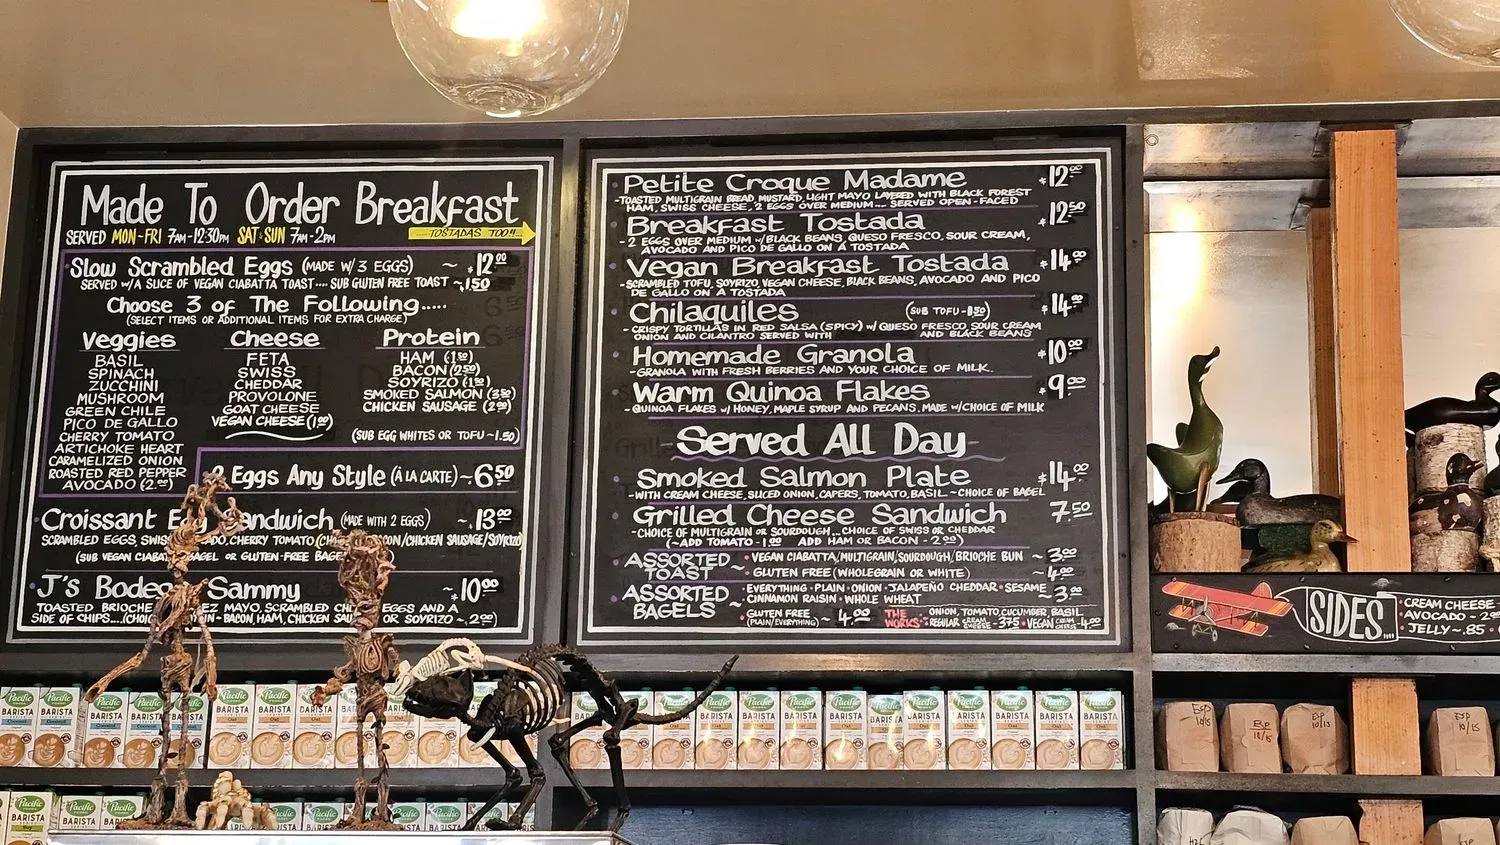 Made To Order Breakfast
SERVED MON-FRI 7AM-12:30PM SAT & SUN 7AM-2PM
TOSTADAS TOO!!
Slow Scrambled Eggs (MADE W/ 3 EGGS) ~ $12.00
SERVED w/A SLICE OF VEGAN CIABATTA TOAST.... SUB GLUTEN FREE TOAST ~1.50
Choose 3 of The Following.....
(SELECT ITEMS OR ADDITIONAL ITEMS FOR EXTRA CHARGE)
Veggies
BASIL
SPINACH
ZUCCHINI
MUSHROOM
GREEN CHILE
PICO DE GALLO
CHERRY TOMATO
ARTICHOKE HEART
CARAMELIZED ONION
ROASTED RED PEPPER
AVOCADO (2.00)
Cheese
FETA
SWISS
CHEDDAR
PROVOLONE
GOAT CHEESE
VEGAN CHEESE (1.00)
Protein
HAM (1.50)
BACON (2.50)
SOYRIZO (1.50)
SMOKED SALMON (3.50)
CHICKEN SAUSAGE (2.00)
(SUB EGG WHITES OR TOFU ~1.50)
2 Eggs Any Style (À LA CARTE) ~ 6.50
Croissant Egg Sandwich (MADE WITH 2 EGGS) ~ 13.00
SCRAMBLED EGGS, SWISS, CHERRY TOMATO BACON/CHICKEN SAUSAGE/SOYRIZO)
(SUB VEGAN CIABATTA BAGEL OR GLUTEN-FREE BAGEL
J'S Bodega Sammy ~ $10.00
TOASTED BRIOCHE MAYO, SCRAMBLED EGGS AND A
SIDE OF CHIPS.... BACON, HAM, CHICKEN OR SOYRIZO ~ 2.00)
Petite Croque Madame $12.00
-TOASTED MULTIGRAIN BREAD, MUSTARD, LIGHT MAYO LAYERED WITH BLACK FOREST
HAM, SWISS CHEESE, 2 EGGS OVER MEDIUM.... SERVED OPEN-FACED
Breakfast Tostada $12.50
- 2 EGGS OVER MEDIUM w/BLACK BEANS, QUESO FRESCO, SOUR CREAM,
AVOCADO AND PICO DE GALLO ON A TOSTADA
Vegan Breakfast Tostada $14.00
-SCRAMBLED TOFU, SOYRIZO, VEGAN CHEESE, BLACK BEANS, AVOCADO AND PICO
DE GALLO ON A TOSTADA
Chilaquiles (SUB TOFU - 1.50) $14.00
- CRISPY TORTILLAS IN RED SALSA (SPICY) w/ QUESO FRESCO, SOUR CREAM
ONION AND CILANTRO SERVED WITH AND BLACK BEANS
Homemade Granola $10.00
-GRANOLA WITH FRESH BERRIES AND YOUR CHOICE OF MILK.
Warm Quinoa Flakes $9.00
-QUINOA FLAKES w/ HONEY, MAPLE SYRUP AND PECANS. MADE w/CHOICE OF MILK
Served All Day
Smoked Salmon Plate $14.00
-WITH CREAM CHEESE, SLICED ONION, CAPERS, TOMATO, BASIL ~ CHOICE OF BAGEL
Grilled Cheese Sandwich 7.50
- CHOICE OF MULTIGRAIN OR SOURDOUGH... CHOICE OF SWISS OR CHEDDAR
(~ADD TOMATO - 1.00 ADD HAM OR BACON - 2.00)
ASSORTED TOAST ~
• VEGAN CIABATTA/MULTIGRAIN/SOURDOUGH/BRIOCHE BUN ~ 3.00
• GLUTEN FREE (WHOLEGRAIN OR WHITE) ~ 4.00
ASSORTED BAGELS ~
• EVERYTHING • PLAIN • ONION • JALAPEÑO CHEDDAR • SESAME
• CINNAMON RAISIN • WHOLE WHEAT ~ 3.00
• GLUTEN FREE (PLAIN/EVERYTHING) ~ 4.00
THE WORKS • ONION, TOMATO, CUCUMBER, BASIL
• REGULAR CREAM CHEESE - 3.75 • VEGAN CREAM CHEESE - 4.00
SIDES...
• CREAM CHEESE
• AVOCADO - 2.00
• JELLY ~ .85
Pacific
BARISTA
Oat
ESP 10/15
ESP 10/15
ESP 10/15
ESP 10/15